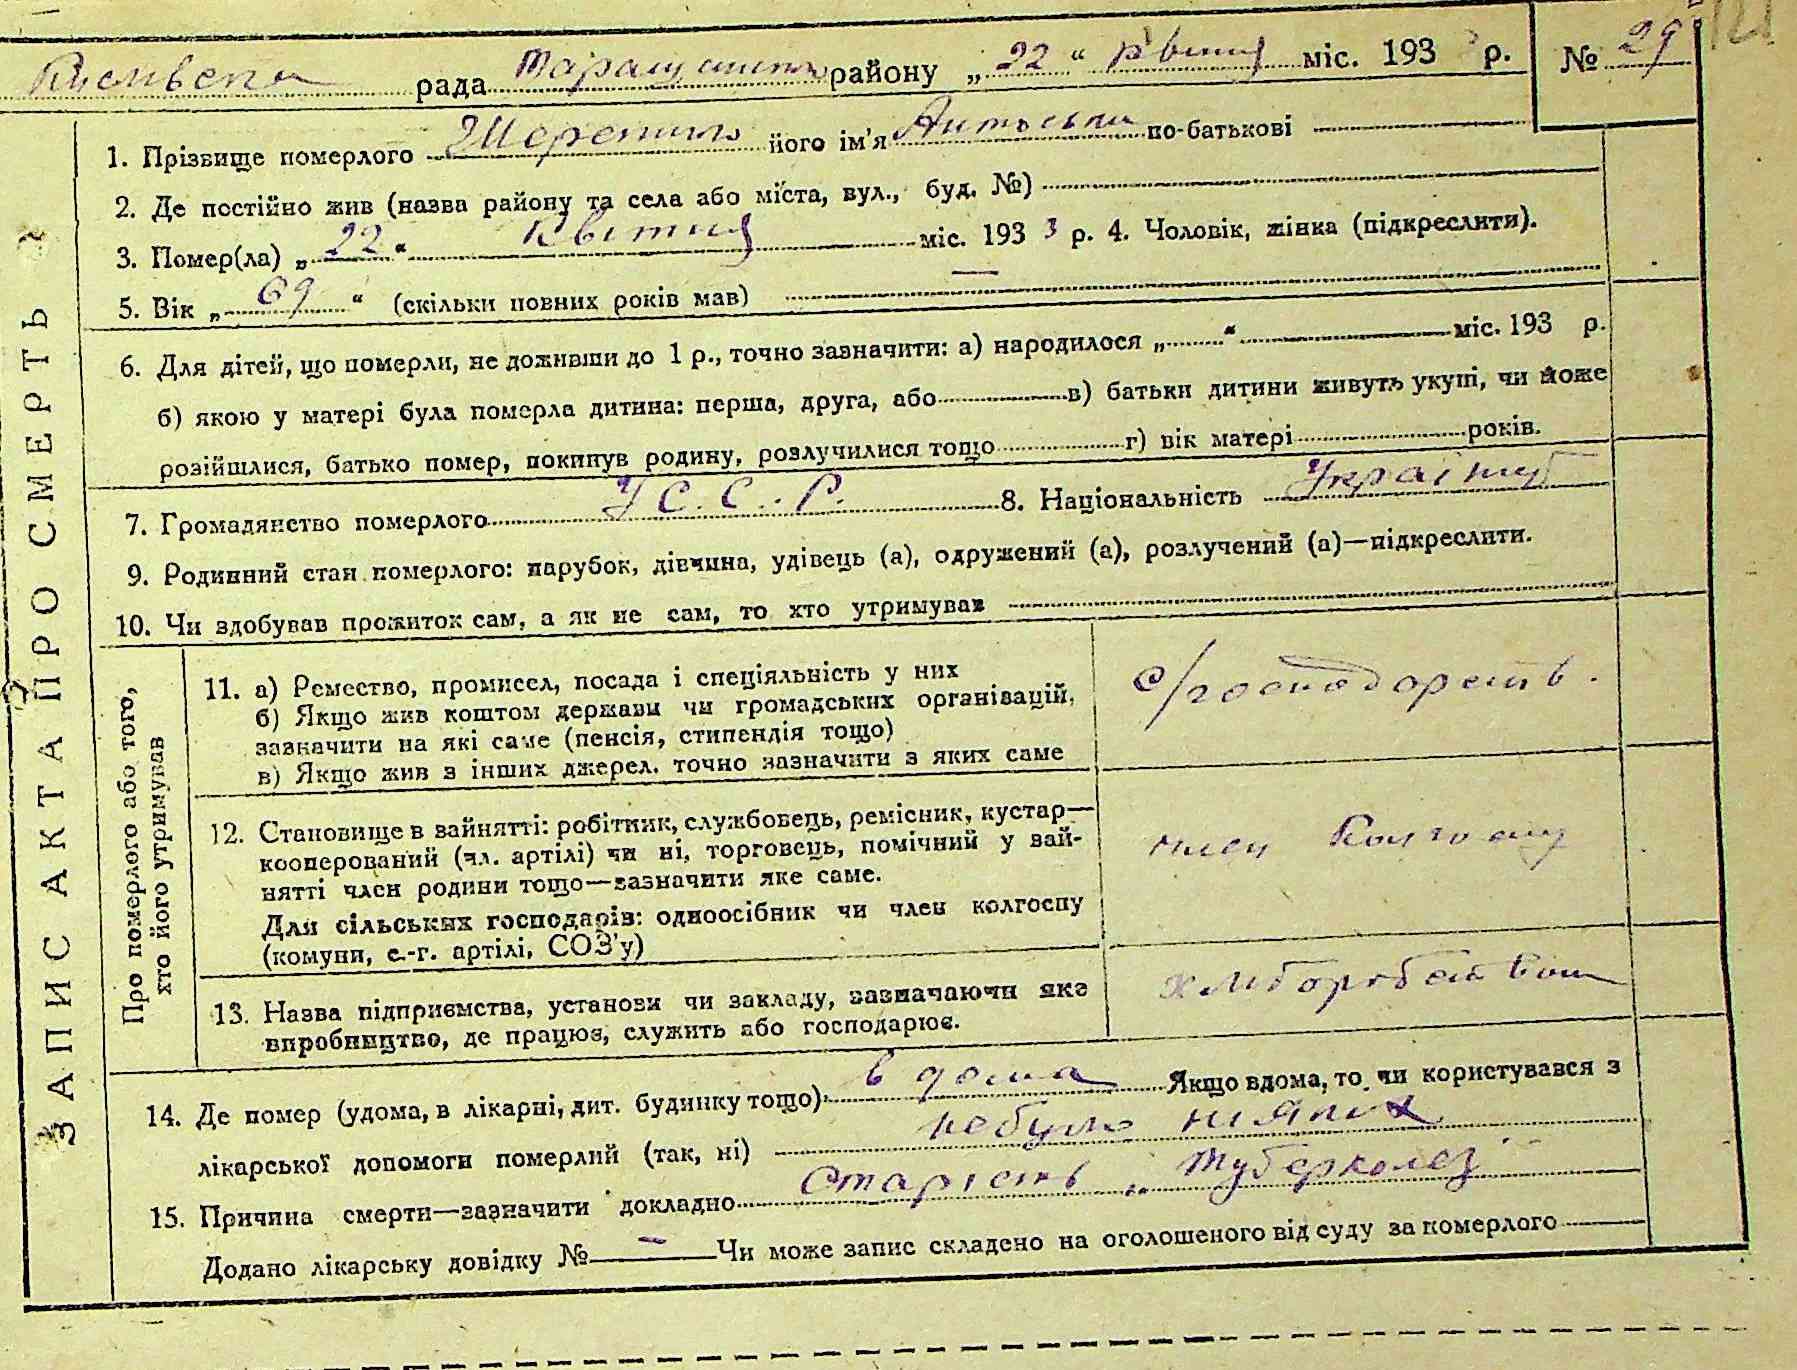 рада Таращанськ району „22“ квітня міс. 193 р. № 29
ЗАПИС АКТА ПРО СМЕРТЬ
1. Прізвище померлого його ім'я по-батькові
2. Де постійно жив (назва району та села або міста, вул., буд. №)
3. Помер(ла) „22“ Квітня міс. 1933 р. 4. Чоловік, жінка (підкреслити).
5. Вік „69“ (скільки повних років мав)
6. Для дітей, що померли, не доживши до 1 р., точно зазначити: а) народилося „ “ міс. 193 р.
б) якою у матері була померла дитина: перша, друга, або в) батьки дитини живуть укупі, чи може
розійшлися, батько помер, покинув родину, розлучилися тощо г) вік матері років.
7. Громадянство померлого У.С.С.Р. 8. Національність
9. Родинний стан померлого: парубок, дівчина, удівець (а), одружений (а), розлучений (а)—підкреслити.
10. Чи здобував прожиток сам, а як не сам, то хто утримував
Про померлого або того,
хто його утримував
11. а) Ремество, промисел, посада і спеціяльність у них
б) Якщо жив коштом держави чи громадських організацій,
зазначити на які саме (пенсія, стипендія тощо)
в) Якщо жив з інших джерел, точно зазначити з яких саме
с/господарств.
12. Становище в зайнятті: робітник, службовець, ремісник, кустар—
кооперований (чл. артілі) чи ні, торговець, помічний у зай-
нятті член родини тощо—зазначити яке саме.
Для сільських господарів: одноосібник чи член колгоспу
(комуни, с.-г. артілі, СОЗ'у)
член Колгоспу
13. Назва підприємства, установи чи закладу, зазначаючи яке
виробництво, де працює, служить або господарює.
14. Де помер (удома, в лікарні, дит. будинку тощо) в дома Якщо вдома, то чи користувався з
лікарської допомоги померлий (так, ні) небуло ніяких
15. Причина смерти—зазначити докладно Старість „Туберкольоз“
Додано лікарську довідку № — Чи може запис складено на оголошеного від суду за померлого